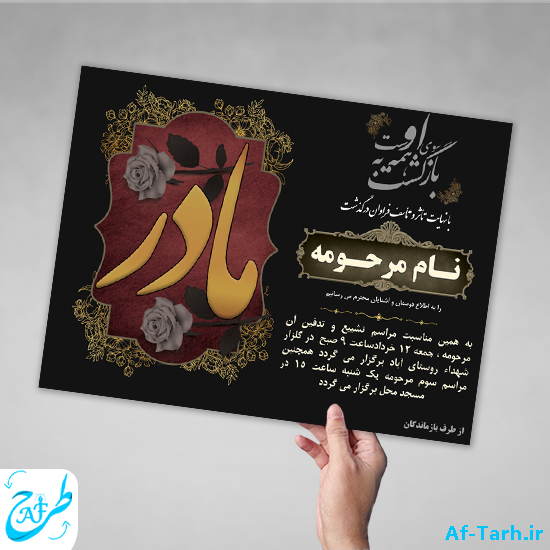 بازگشت همه به سوی اوست
با نهایت تاثر و تاسف فراوان درگذشت
نام مرحومه
را به اطلاع دوستان و آشنایان محترم می رسانیم
به همین مناسبت مراسم تشییع و تدفین آن
مرحومه ، جمعه ۱۲ خردادساعت ۹ صبح در گلزار
شهداء روستای آباد برگزار می گردد همچنین
مراسم سوم مرحومه یک شنبه ساعت ۱۵ در
مسجد محل برگزار می گردد
از طرف بازماندگان
مادر
طرح
AF
Af-Tarh.ir